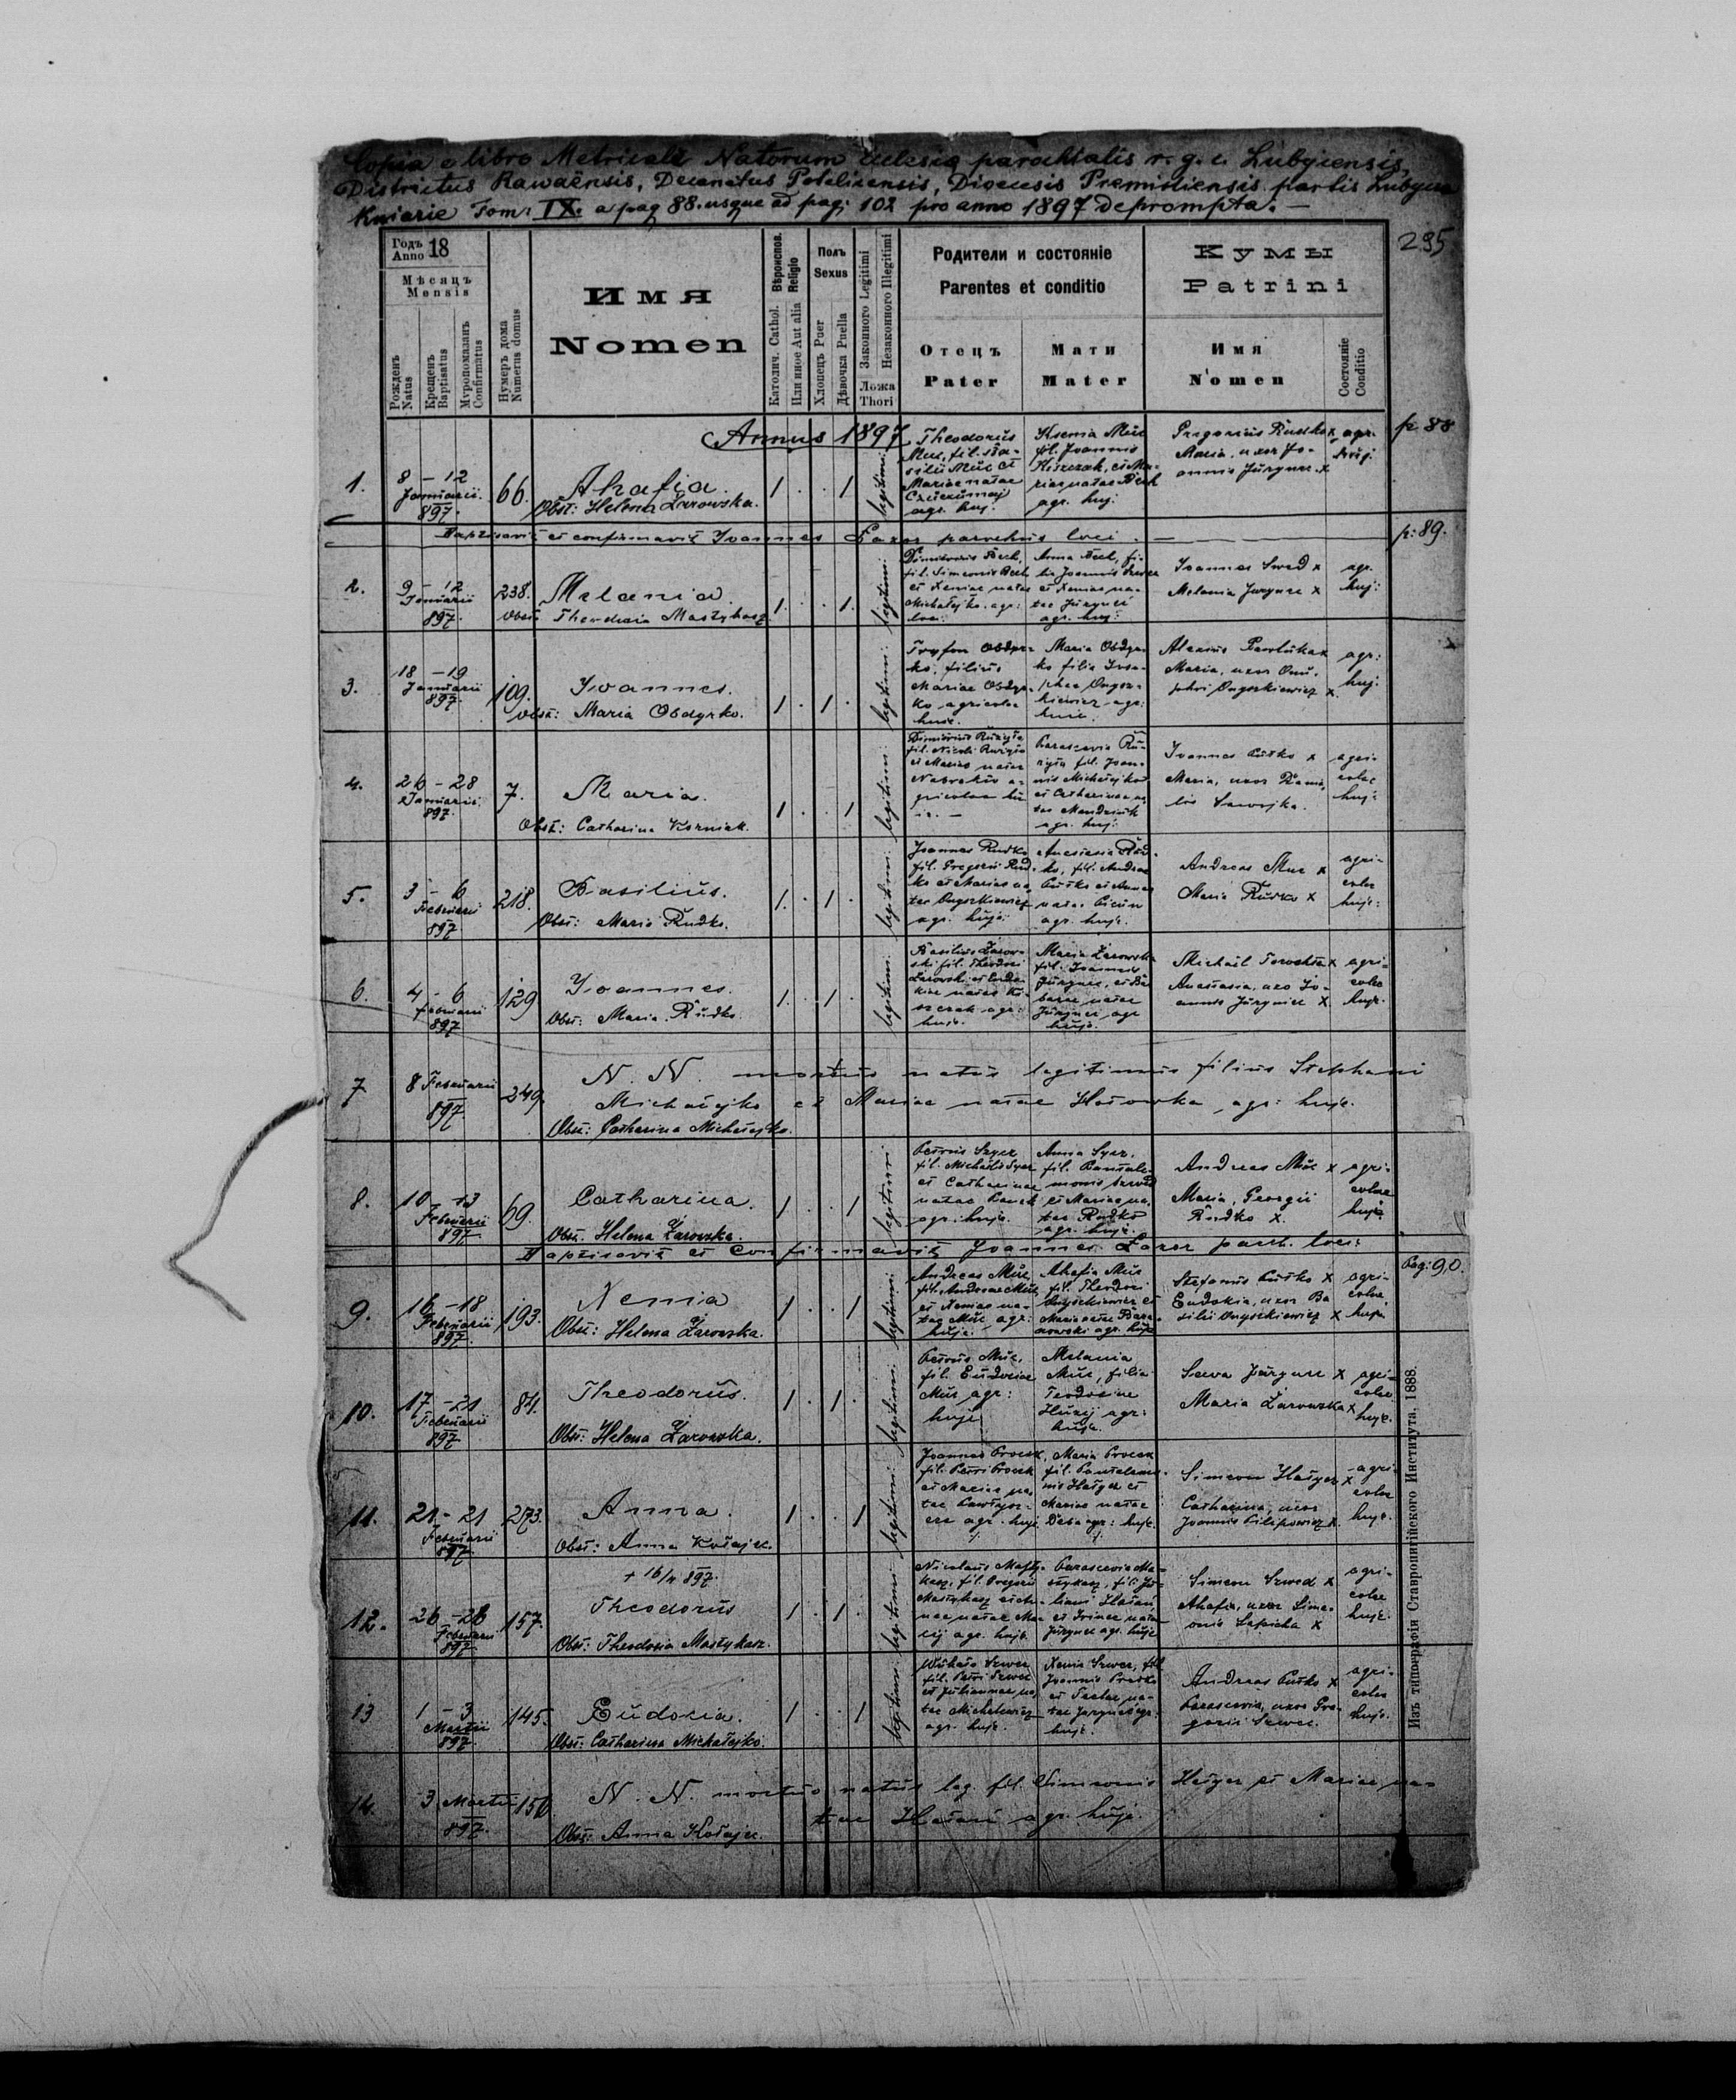 Copia e libro Metricali Natorum eclesiae parochialis r. g. c. Lubycensis,
Districtus Rawaënsis, Decanatus Potelicensis, Diocesis Premisliensis partis Lubycza
Kniazie Tom: IX. a pag 88. usque ad pag: 102 pro anno 1897 deprompta. —
295
Годъ
Anno 18
Мѣсяцъ
Mensis
Рожденъ
Natus
Крещенъ
Baptisatus
Муропомазанъ
Confirmatus
Нумеръ дома
Numerus domus
Имя
Nomen
Вѣроиспов.
Religio
Католич. Cathol.
Или иное Aut alia
Полъ
Sexus
Хлопецъ Puer
Дѣвочка Puella
Законного Legitimi
Незаконного Illegitimi
Ложа
Thori
Родители и состояніе
Parentes et conditio
Отецъ
Pater
Мати
Mater
Кумы
Patrini
Имя
Nomen
Состояніе
Conditio
Annus 1897
p. 88
1.
8 – 12
Januarii
897.
66.
Ahafia.
Obst: Helena Żarowska.
1 . . 1
legitimi
Theodorus
Muc, fil. Ba-
silii Muc et
Mariae natae
agr. huj.
Ksenia Muc
fil. Joannis
Kiszczak, et Ma-
riae natae Bech
agr. huj.
Gregorius Rudko x
Maria, uxor Jo-
annis Juzyniec x
agr.
huj.
Baptisavit et confirmavit Joannes Lazor parochus loci. —
p: 89.
2.
9 – 12
Januarii
897.
238.
Melania
Obst: Theodosia Mastykasz
1 . . 1.
legitimi
Dimitrius Bech,
fil. Simeonis Bech
et Xeniae natae
Michałejko agr:
loci.
Anna Bech, fi-
lia Joannis Szwec
et Xeniae na-
tae Juzyniec
agr. huj:
Joannes Szwed x
Melania Juzyniec x
agr.
huj:
3.
18 – 19
Januarii
897.
109.
Ivannes.
Obst: Maria Obdyrko.
1 . 1 .
legitimi
Tryfon Obdyr-
ko, filius
Mariae Obdyr-
ko agricolae
huic.
Maria Obdyr-
ko filia Josa-
phae Onysz-
kiewicz agr:
huic.
Alexius Pawluk x
Maria, uxor Onu-
phri Onyszkiewicz x.
agr:
huj.
4.
26 – 28
Januarii
897.
7.
Maria.
Obst: Catharina Korniak.
1 . . 1
legitimi
fil. Nicolai
et Mariae natae
gricolae hu-
ic. —
Parascevia
fil. Joan-
nis Michałejko
et Catharinae na-
tae
agr. huj:
Ivannes Putko x
Maria, uxor Dani-
lis
agri-
colae
huj:
5.
3 – 6
Februarii
897
218.
Basilius.
Obst: Maria Rudko.
1. . 1 .
legitimi
Joannes Rudko
fil. Gregorii Rud-
ko et Mariae na-
tae Onyszkiewicz
agr. huje.
Anastasia Rud-
ko, fil. Andreae
Putko et Annae
natae
agr. huje.
Andreas Muc x
Maria Rudko x
agri-
colae
huje:
6.
4 – 6
Februarii
897
129
Ivannes.
Obst: Maria Rudko.
1. . 1 .
legitimi
Basilius Żarow-
ski fil. Theodori
Żarowski et Eudo-
kiae natae Ki-
szczak agr:
huje.
Maria Żarowska
fil. Joannis
Juzyniec, et Bar-
barae natae
Juzyniec agr
huje.
Michaël x
Anastasia, uxo Jo-
annis Juzyniec x
agri-
colae
huje.
7
8 Februarii
897
249.
N. N. mortuus natus legitimus filius Stephani
Michałejko et Mariae natae Hołowka, agr: huje.
Obst: Catharina Michałejko.
8.
10 – 13
Februarii
897.
69.
Catharina.
Obst. Helena Żarowska.
1 . . 1
legitimi
Petrus Szyer
fil. Michaëlis Szyer
et Catharinae
natae
agr. huje.
Anna Szyer,
fil. Pantale-
monis Szwed
et Mariae na-
tae Rudko
agr. huje.
Andreas Muc x
Maria, Georgii
Rudko x.
agri-
colae
huje.
Baptisavit et Confirmavit Joannes Lazor paroch. loci:
Pag: 90.
9.
16 – 18
Februarii
897.
193.
Xenia
Obst: Helena Żarowska.
1 . . 1
legitimi
Andreas Muc,
fil. Andreae Muc
et Xeniae na-
tae Muc, agr:
huje.
Ahafia Muc
fil. Theodori
Onyszkiewicz et
Mariae natae Bara-
nowski agr. huje
Stefanus Putko x
Eudokia, uxor Ba-
silii Onyszkiewicz x
agri-
colae
huje.
10.
17 – 21
Februarii
897
84.
Theodorus.
Obst: Helena Żarowska.
1 . 1 .
legitimi
Petrus Muc,
fil. Eudociae
Muc agr:
huje
Melania
Muc, filia
Teodosiae
Huzij agr:
huje.
Sawa Juzyniec x
Maria Żarowska x.
agri-
colae
huje.
11.
21 – 21
Februarii
897.
273.
Anna.
Obst: Anna Kołajec.
1 . . 1
legitimi
Joannes Procek,
fil. Petri Procek
et Mariae na-
tae
agr. huje
Maria Procek
fil. Pantalemo-
nis Hałyer et
Mariae natae
Deba agr: huje.
Simeon Hałyer x
Catharina, uxor
Joannis Pilipowicz x.
agri-
colae
huje.
12.
26 – 28
Februarii
897
157.
+ 16/4 897.
Theodorus
Obst: Theodosia Mastykasz.
1 . 1 .
legitimi
Nicolaus Masty-
kasz, fil. Gregorii
Mastykasz et An-
nae natae
agr. huje.
Parascevia Ma-
stykasz, fil. Ju-
liani Hałan,
et Irinae natae
Juzyniec agr. huje
Simeon Szwed x
Ahafia, uxor Sime-
onis Sapicha x
agri-
colae
huje.
13
1 – 3
Martii
897.
145.
Eudocia.
Obst: Catharina Michałejko.
1 . . 1
legitimi
Szwec
fil. Petri Szwec
et Julianae na-
tae Michalewicz
agr. huje.
Xenia Szwec, fil
Joannis
et Teclae na-
tae Juzyniec agr.
huje.
Andreas Putko x
Parascevia, uxor Gre-
gorii Szwec.
agri-
colae
huje.
14.
3 Martii
897.
150
N. N. mortuo natus leg. fil. Simeonis Hałyer et Mariae na-
tae Hałan agr. huje.
Obst: Anna Kołajec.
Изъ типографіи Ставропигійского Института, 1888.